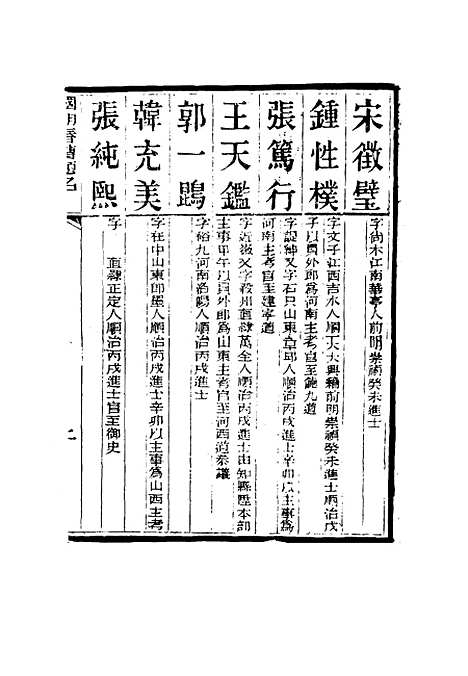 宋徵璧
字尙木江南華亭人前明崇禎癸未進士
鍾性樸
字文子江西吉水人順天大興籍前明崇禎癸未進士順治戊
子以員外郎爲河南主考官至饒九道
張篤行
字諟紳又字石只山東章邱人順治丙戌進士辛卯以主事爲
河南主考官至建寧道
王天鑑
字近微又字毅州直隸萬全人順治丙戌進士由知縣陞本部
主事甲午以員外郎爲山東主考官至河西道參議
郭一鶚
字裕九河南洛陽人順治丙戌進士
韓充美
字在中山東卽墨人順治丙戌進士辛卯以主事爲山西主考
張純熙
字 直隸正定人順治丙戌進士官至御史